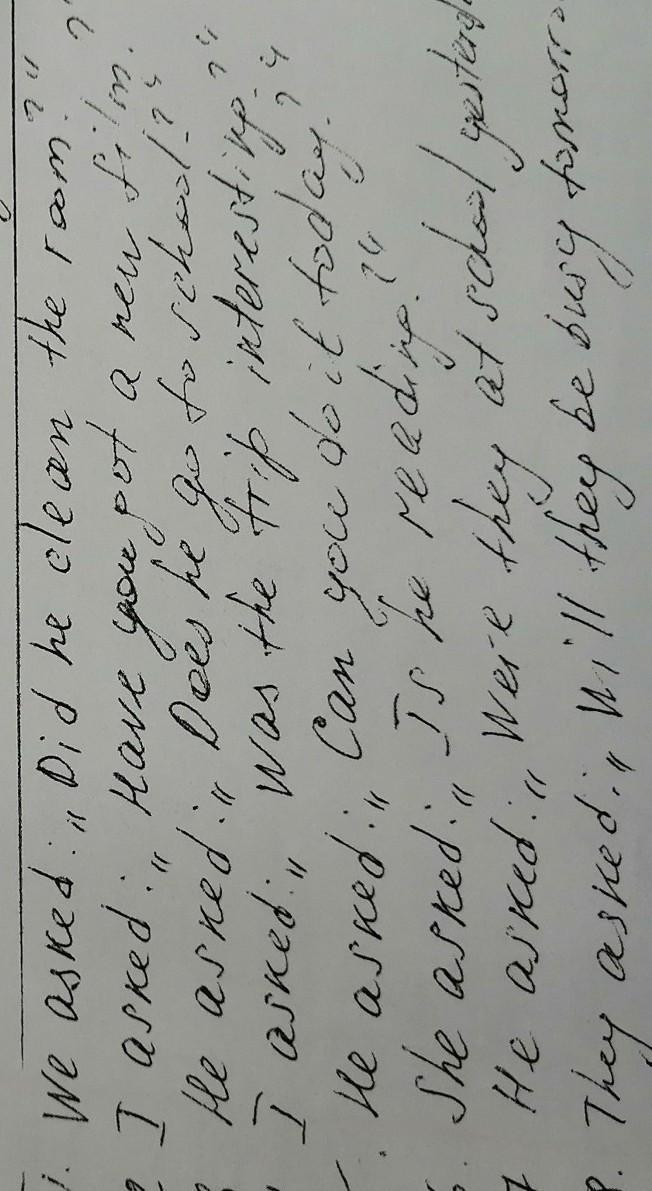 1. We asked: „Did he clean the room?"
I asked: „Have you got a new film?"
He asked: „Does he go to school?"
I asked: „Was the trip interesting?"
He asked: „Can you do it today?"
She asked: „Is he reading?"
7 He asked: „Were they at school yesterd
8. They asked: „Will they be busy tomorro